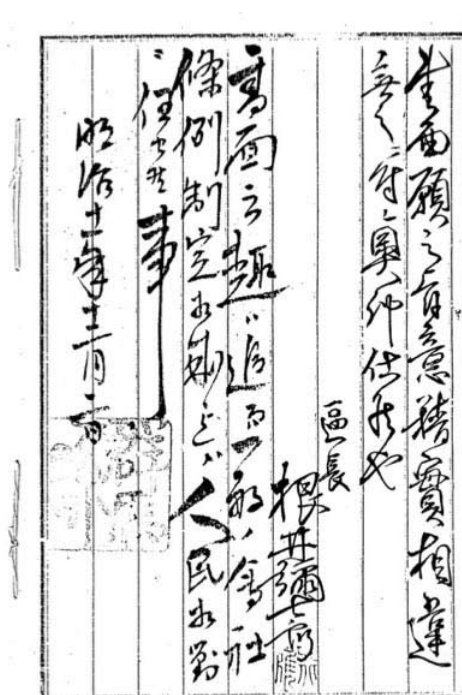 書面願之旨意 實相違
無之ニ付奥印仕候也
區長
根井彌七郎
書面之趣ハ追而一般ノ會社
條例制定相成候迄ハ人民相對
ニ任セ候事
明治十一年十二月 日